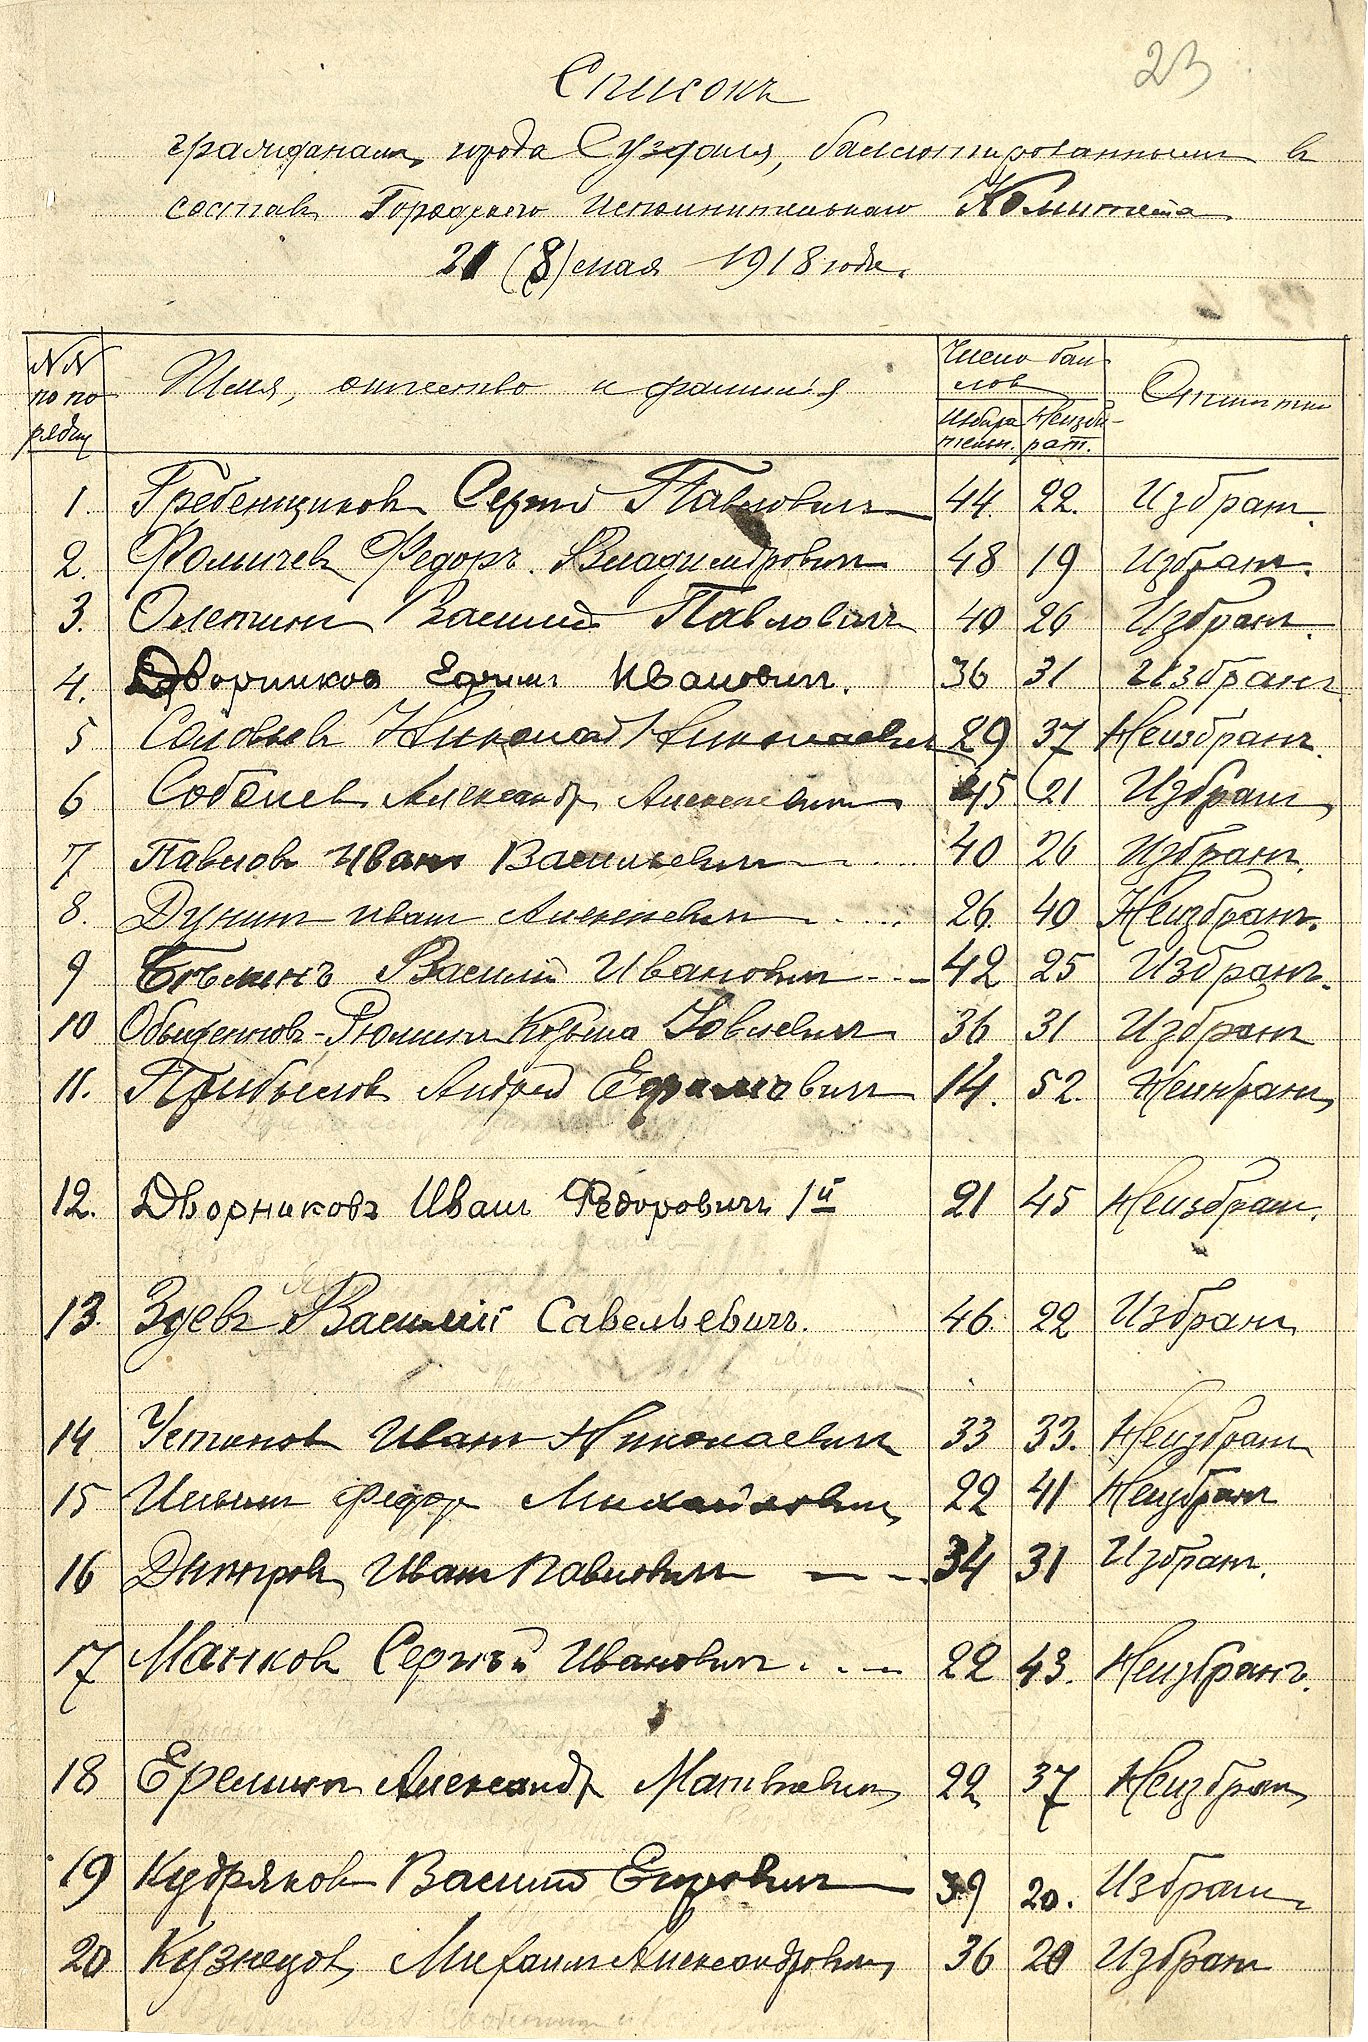 23
Списокъ
гражданам города Суздаля, баллотированным в
состав Городского Исполнительнаго Комитета
21 (8) мая 1918 года.
NN по порядку Имя, отчество и фамилия Число баллов Избирательн. Неизбират. Отметки
1. Гребенщиков Сергей Павлович 44. 22. Избран.
2. Фомичев Федоръ Владимірович 48 19 Избран.
3. Олетин Василий Павлович 40 26 Избран.
4. Дворников Ефим Иванович. 36 31 Избран
5 Соловьев Николай Николаевич 29 37 Неизбранъ.
6 Соболев Александр Алексеевич 45 21 Избран
7 Павлов Иван Васильевич 40 26 Избран.
8. Дунин Иван Алексеевич 26. 40 Неизбранъ.
9 Бѣлинъ Василий Иванович 42 25 Избранъ.
10 Обыденнов-Рюмин Козьма Іовлевич 36 31 Избран
11. Прибылов Андрей Ефимович 14. 52. Неизбран
12. Дворниковъ Иван Федорович 1й 21 45 Неизбран.
13. Зуевъ Василій Савельевичъ. 46. 22 Избран
14 Устинов Иван Николаевич 33 33. Неизбран
15 Ильин Федор Михайлович 22 41 Неизбран
16 Дмитров Иван Павлович 34 31 Избран.
17 Манков Сергѣй Иванович 22 43. Неизбранъ.
18 Еремкин Александр Матвеевич 22 37 Неизбран
19 Кудряков Василий Егорович 39 20. Избран
20 Кузнецов Михаил Александрович 36 20 Избран